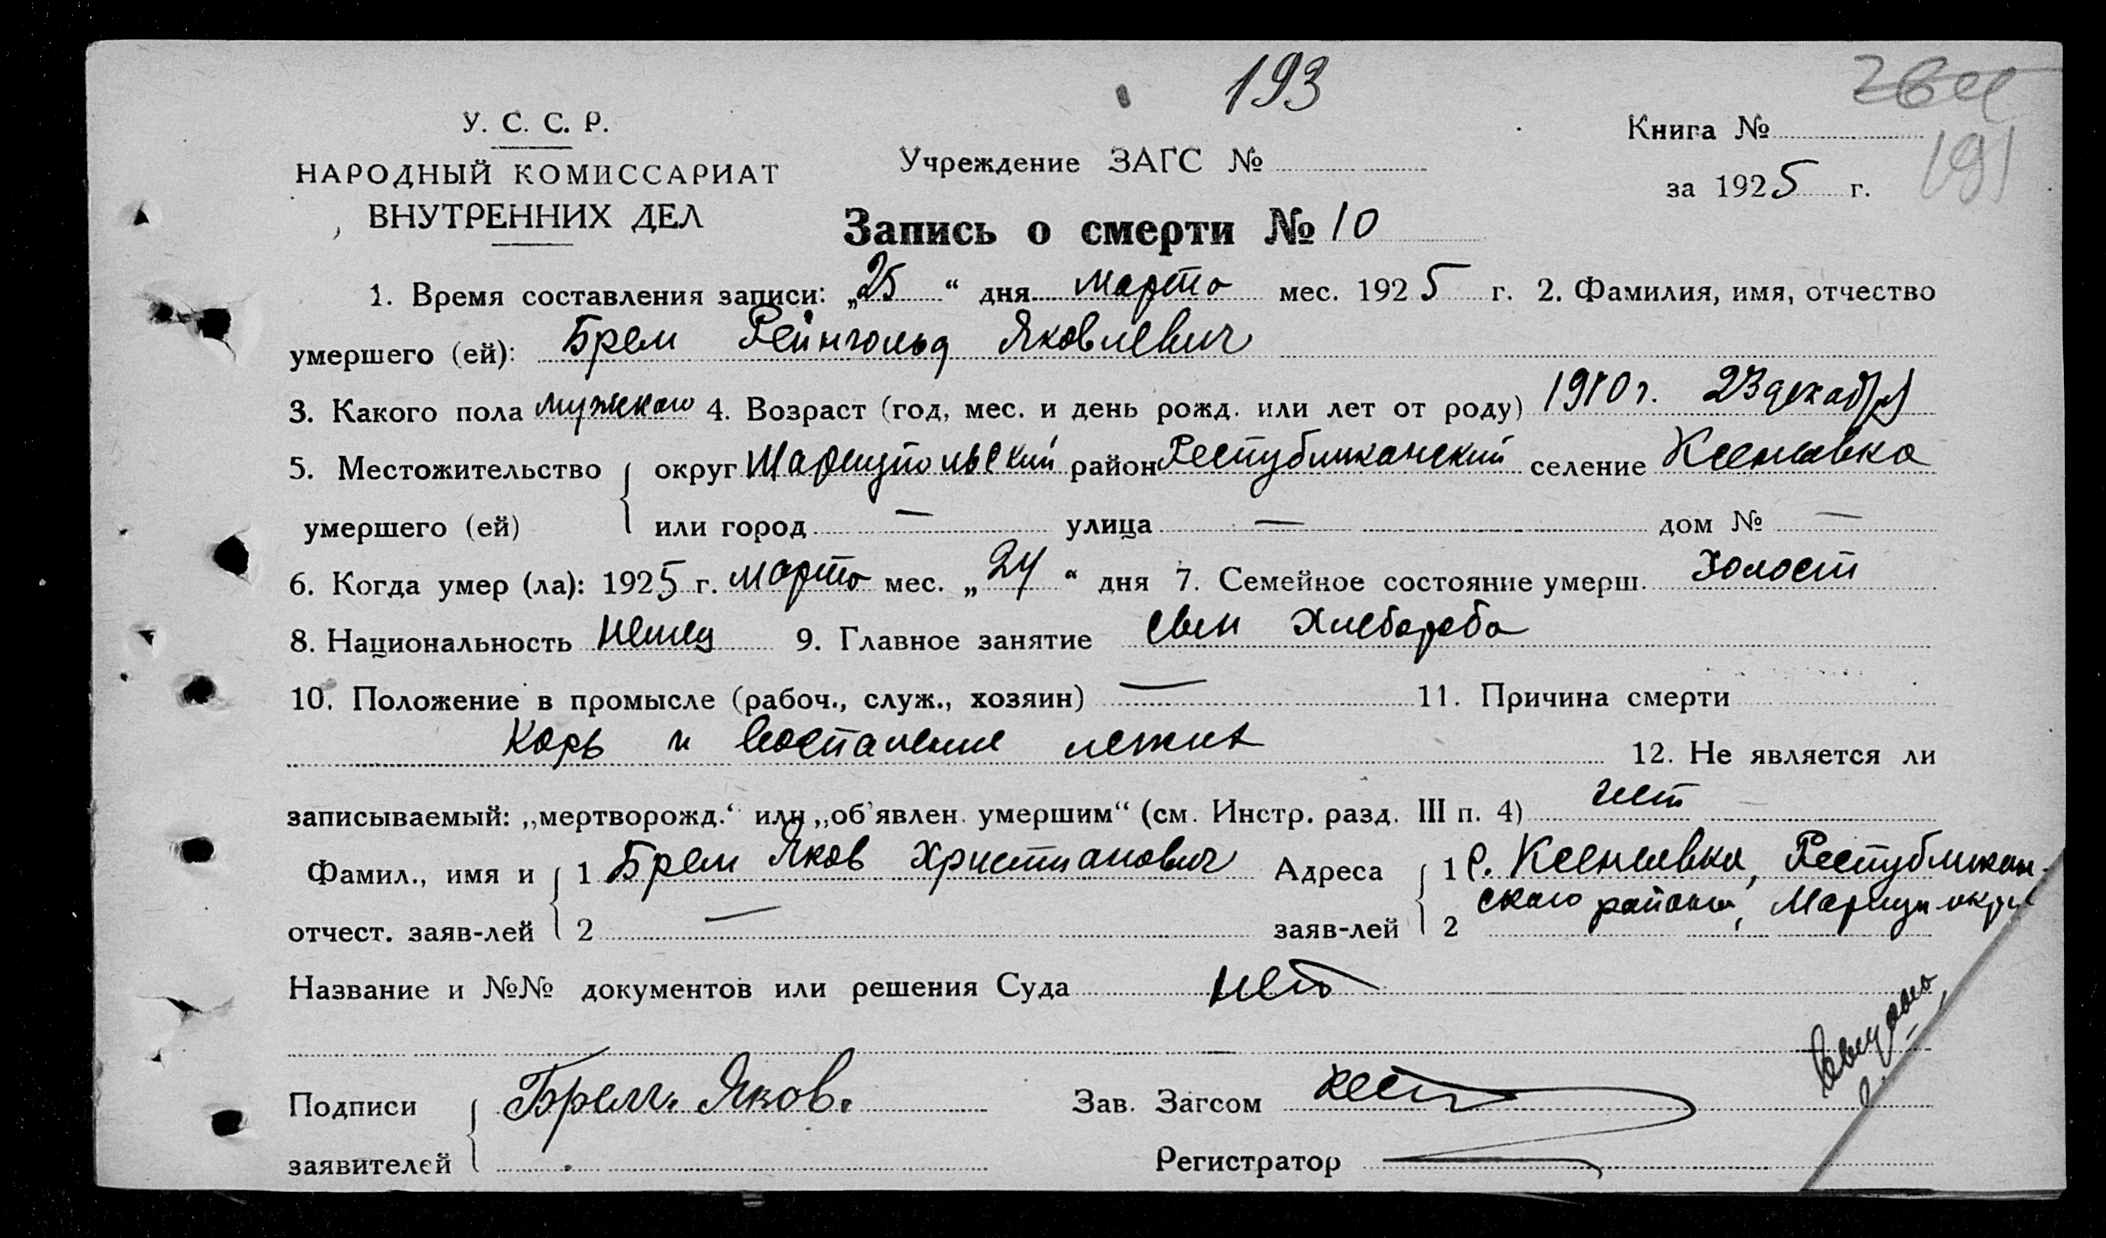 193
У. С. С. Р.
НАРОДНЫЙ КОМИССАРИАТ
ВНУТРЕННИХ ДЕЛ
Учреждение ЗАГС №
Книга №
191
за 1925 г.
Запись о смерти № 10
1. Время составления записи: „25“ дня марта мес. 1925 г. 2. Фамилия, имя, отчество
умершего (ей): Брем Рейнгольд Яковлевич
3. Какого пола мужского 4. Возраст (год, мес. и день рожд. или лет от роду) 1910 г. 23 декабря
5. Местожительство округ Мариупольский район Республиканский селение Ксеньевка
умершего (ей) или город — улица — дом № —
6. Когда умер (ла): 1925 г. марта мес. „24“ дня 7. Семейное состояние умерш. Холост
8. Национальность Немец 9. Главное занятие сын Хлебороба
10. Положение в промысле (рабоч., служ., хозяин) — 11. Причина смерти
Корь и воспаление легких
12. Не является ли
записываемый: „мертворожд.“ или „об'явлен. умершим“ (см. Инстр. разд. III п. 4) нет
Фамил., имя и 1 Брем Яков Христианович Адреса 1 С. Ксеньевка, Республикан-
отчест. заяв-лей 2 — заяв-лей 2 ского района, Мариуп округ
Название и №№ документов или решения Суда нет
Подписи Брем. Яков. Зав. Загсом
заявителей Регистратор